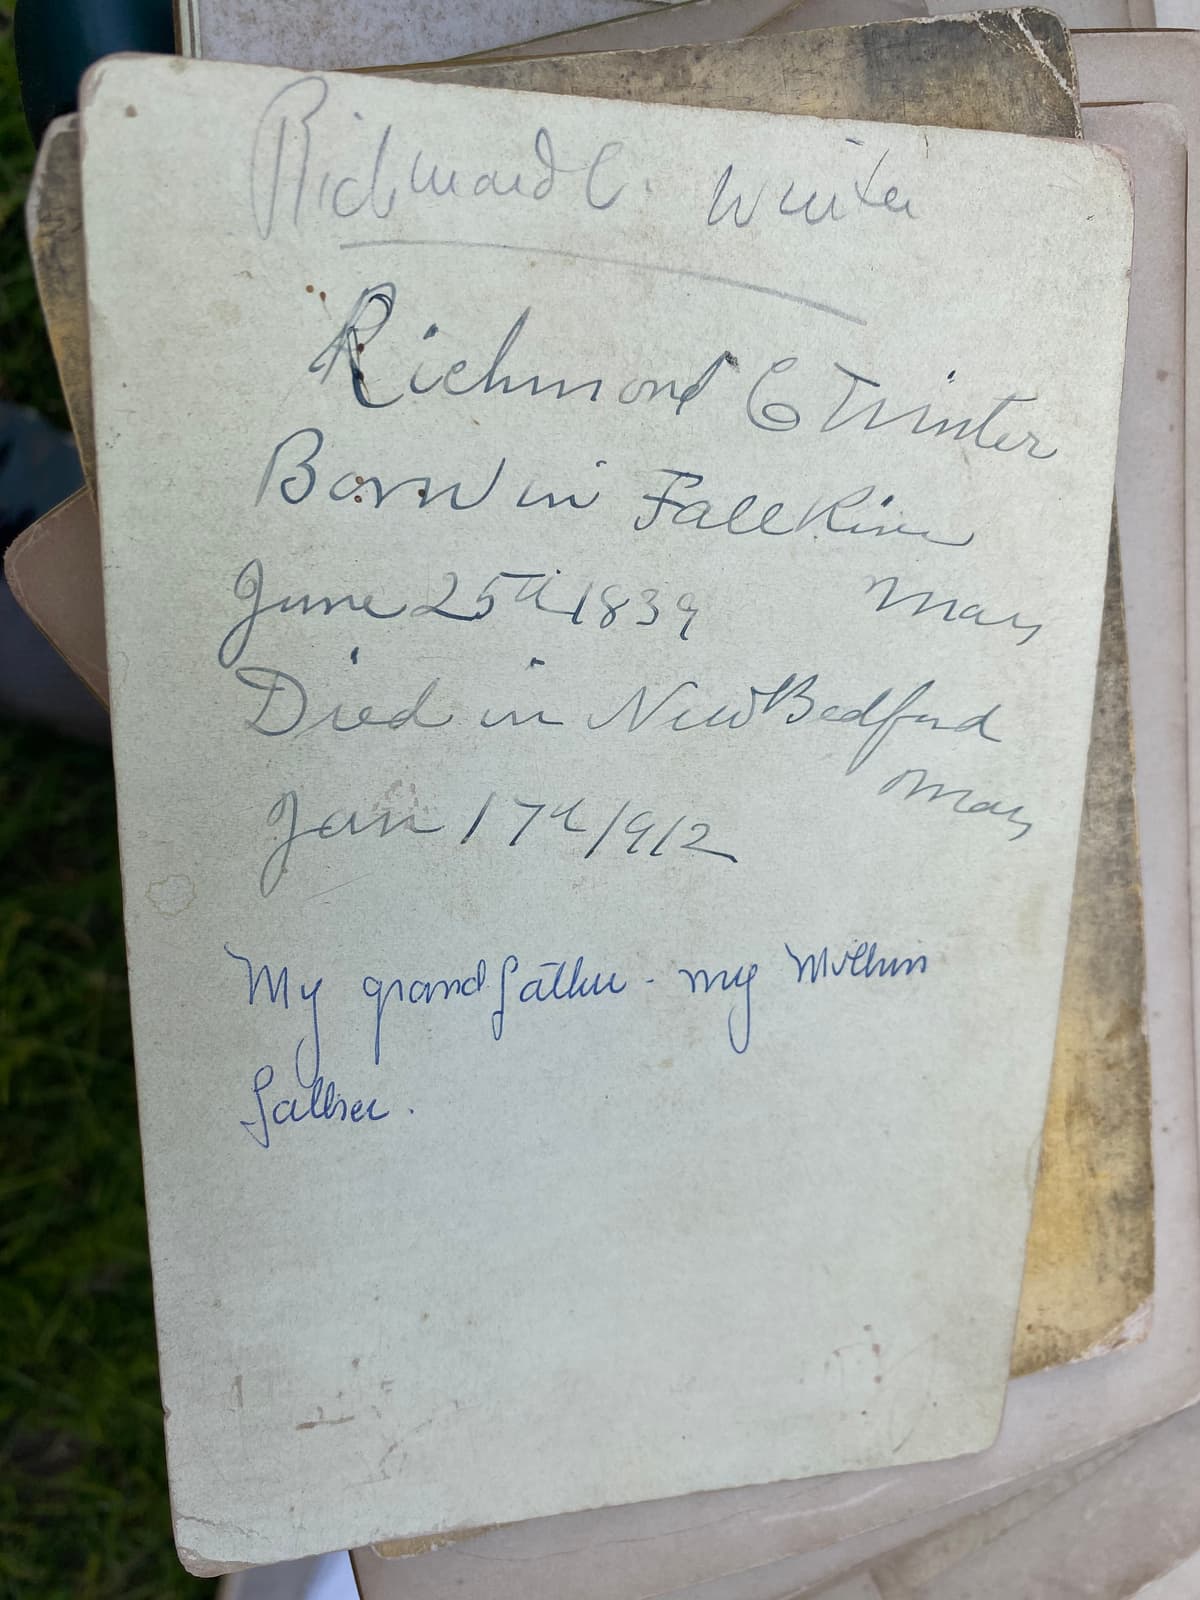 Richmond C. Winter
Richmond C Winter
Born in Fall River
Mass
June 25th 1839
Died in New Bedford
Mass
Jan 17th 1912
My grandfather - my Mothers
father.